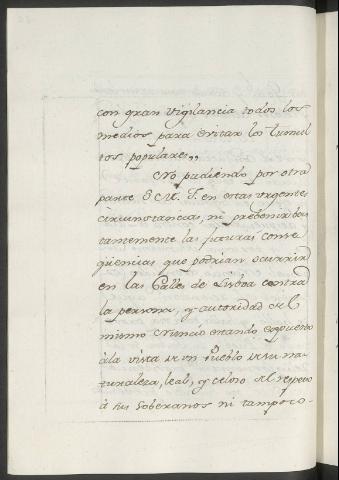 con gran Vigilancia todos los
medios para evitar los tumul
tos populares,,
No pudiendo por otra
parte S. M. F. en estas urgentes
circunstancias, ni prebenir bas
tantemente las futuras conse
quencias que podrian ocurrir
en las Calles de Lisboa contra
la persona, y autoridad del
mismo Nuncio estando expuesto
àla vista de un Pueblo de su na
turaleza, leal, y celoso del respeto
à sus Soberanos ni tampoco-